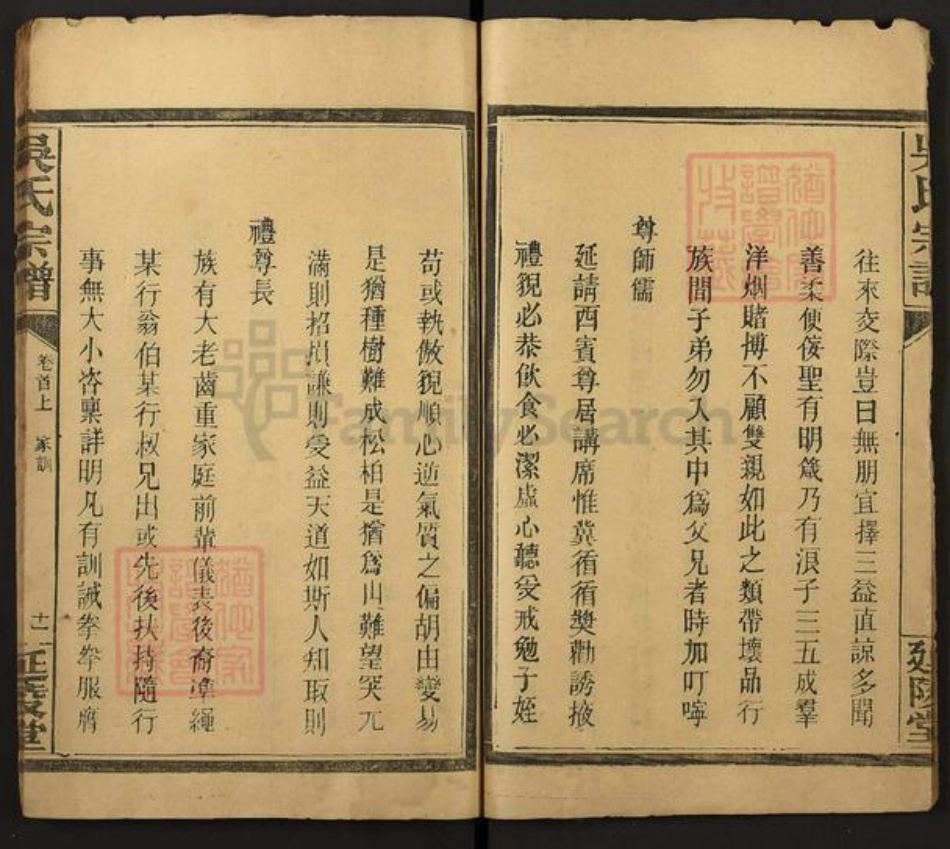 往來交際豈曰無朋宜擇三益直諒多聞
善柔便佞聖有明箴乃有浪子三五成羣
洋烟賭博不顧雙親如此之類帶壞品行
族間子弟勿入其中為父兄者時加叮嚀
尊師儒
延請西賓尊居講席惟冀循循奬勸誘掖
禮貌必恭飲食必潔虛心聽受戒勉子姪
苟或執傲貌順心逆氣質之偏胡由變易
是猶種樹難成松柏是猶為山難望突兀
滿則招損謙則受益天道如斯人知取則
禮尊長
族有大老齒重家庭前輩儀表後裔準繩
某行翁伯某行叔兄出或先後扶持隨行
事無大小咨稟詳明凡有訓誡拳拳服膺
吳氏宗譜
卷首上
家訓
十一
延陵堂
吳氏宗譜
延陵堂
FamilySearch